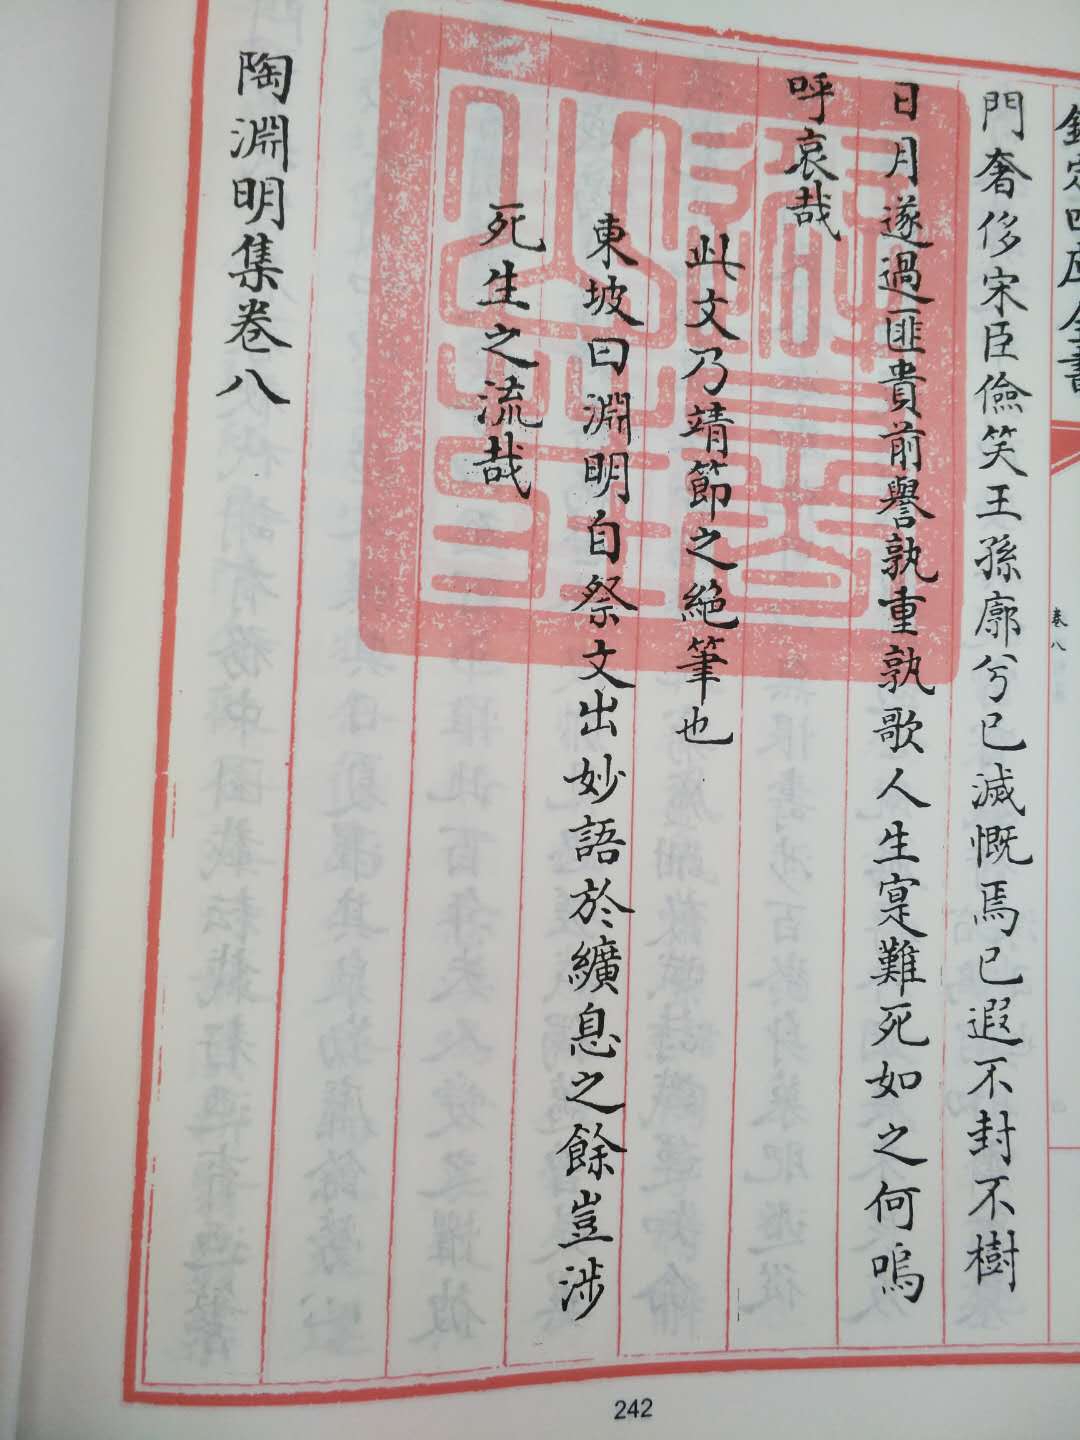 欽定四庫全書
卷八
門奢侈宋臣儉笑王孫廓兮已滅慨焉已遐不封不樹
日月遂過匪貴前譽孰重孰歌人生寔難死如之何嗚
呼哀哉
此文乃靖節之絶筆也
東坡曰淵明自祭文出妙語於纊息之餘豈涉
死生之流哉
陶淵明集卷八
242